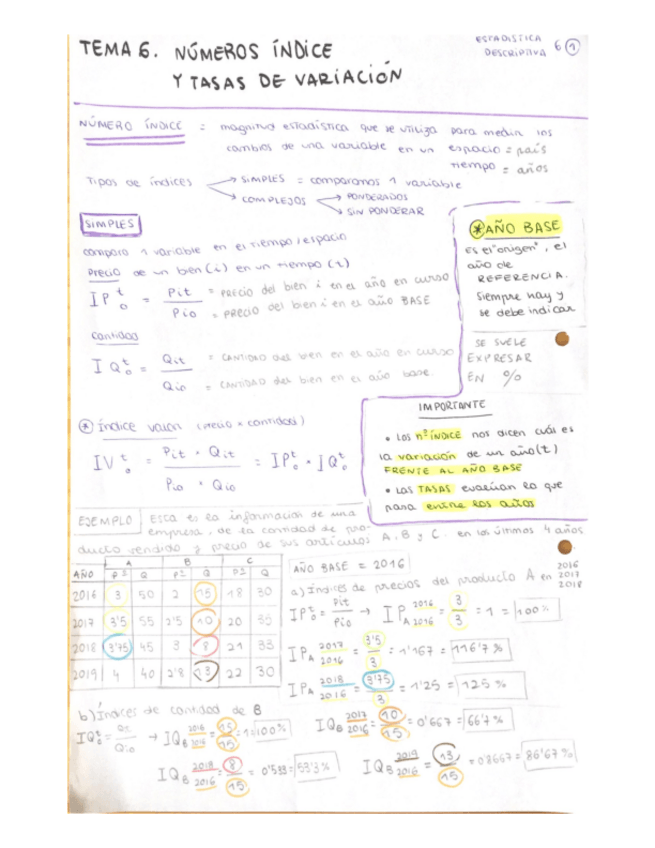 ESTADÍSTICA
DESCRIPTIVA 6 ①
TEMA 6. NÚMEROS ÍNDICE
Y TASAS DE VARIACIÓN
NÚMERO ÍNDICE = magnitud estadística que se utiliza para medir los
cambios de una variable en un espacio = país
tiempo = años
Tipos de índices → SIMPLES = comparamos 1 variable
→ COMPLEJOS → PONDERADOS
→ SIN PONDERAR
SIMPLES
compara 1 variable en el tiempo/espacio
PRECIO de un bien (i) en un tiempo (t)
IP t 0 = Pit / Pi0 = PRECIO del bien i en el año en curso
= PRECIO del bien i en el año BASE
Cantidad
IQ t 0 = Qit / Qi0 = CANTIDAD del bien en el año en curso
= CANTIDAD del bien en el año base.
* AÑO BASE
ES el "origen", el
año de
REFERENCIA.
Siempre hay y
se debe indicar
SE SUELE
EXPRESAR
EN %
* Índice valor (precio × cantidad)
IV t 0 = Pit · Qit / Pi0 · Qi0 = IP t 0 · IQ t 0
IMPORTANTE
• Los nº ÍNDICE nos dicen cuál es
la variación de un año (t)
FRENTE AL AÑO BASE
• Las TASAS evalúan lo que
pasa entre los años
EJEMPLO Esta es la información de una
empresa, de la cantidad de pro-
ducto vendido y precio de sus artículos A, B y C. en los últimos 4 años
A B C
AÑO Pº Q Pº Q Pº Q
2016 3 50 2 15 18 30
2017 3'5 55 2'5 10 20 35
2018 3'75 45 3 8 21 33
2019 4 40 2'8 13 22 30
AÑO BASE = 2016
a) Índices de precios del producto A en 2016
2017
2018
IP t 0 = Pit / Pi0 → IP A 2016 / 2016 = 3 / 3 = 1 = 100%
IP A 2017 / 2016 = 3'5 / 3 = 1'167 = 116'7 %
IP A 2018 / 2016 = 3'75 / 3 = 1'25 = 125 %
b) Índices de cantidad de B
IQ t 0 = Qit / Qi0 → IQ B 2016 / 2016 = 15 / 15 = 1 = 100%
IQ B 2017 / 2016 = 10 / 15 = 0'667 = 66'7 %
IQ B 2018 / 2016 = 8 / 15 = 0'533 = 53'3 %
IQ B 2019 / 2016 = 13 / 15 = 0'8667 = 86'67 %